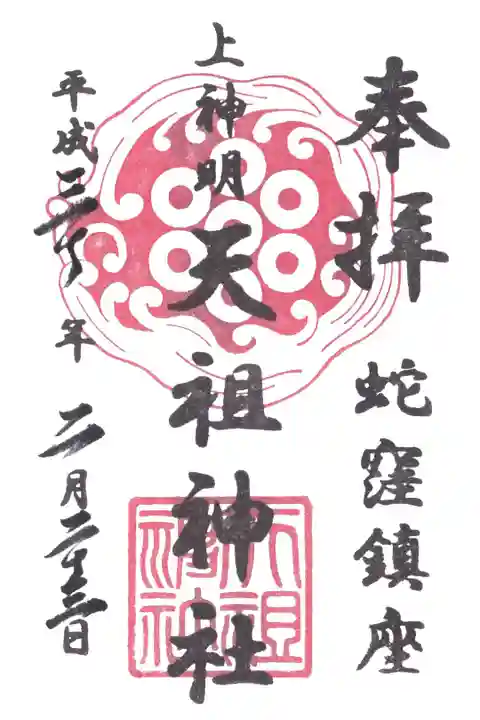 奉拝
蛇窪鎮座
上神明
天祖神社
平成三十年
二月二十三日
天祖神社